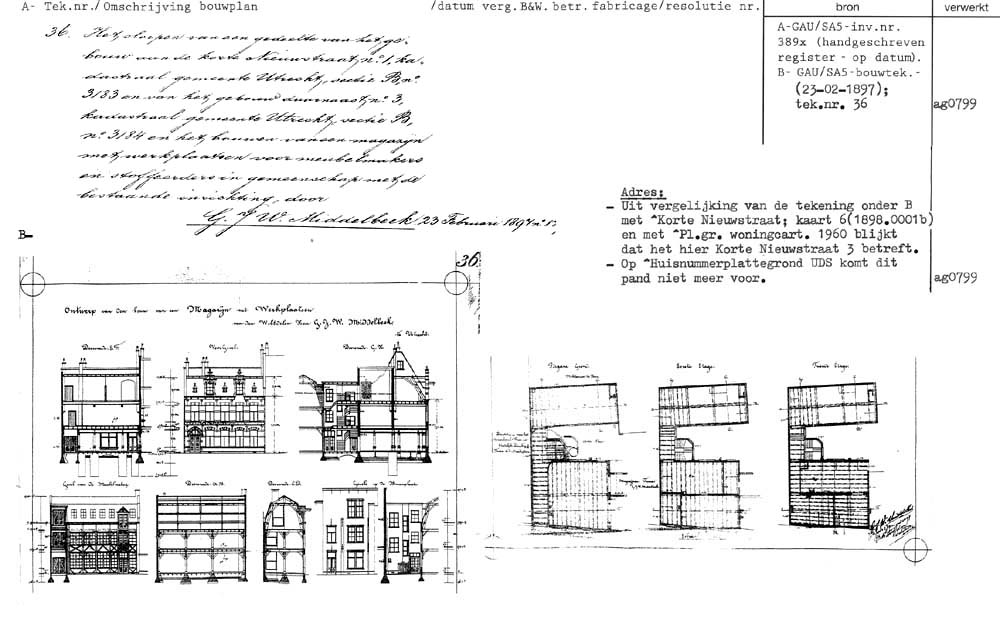 A- Tek.nr./Omschrijving bouwplan /datum verg.B&W. betr. fabricage/resolutie nr. bron verwerkt
36. Het sloopen van een gedeelte van het ge-
bouw aan de korte Nieuwstraat, nº 1, ka-
dastraal gemeente Utrecht, sectie B, nº
3183 en van het gebouw daarnaast, nº 3,
kadastraal gemeente Utrecht, sectie B,
nº 3184 en het bouwen van een magazijn
met werkplaatsen voor meubelmakers
en stoffeerders in gemeenschap met de
bestaande inrichting, door
G. J. W. Middelbeek, 23 Februari 1897
A-GAU/SA5-inv.nr.
389x (handgeschreven
register - op datum).
B- GAU/SA5-bouwtek.-
(23-02-1897);
tek.nr. 36 ag0799
Adres:
— Uit vergelijking van de tekening onder B
met ^Korte Nieuwstraat; kaart 6(1898.0001b)
en met ^Pl.gr. woningcart. 1960 blijkt
dat het hier Korte Nieuwstraat 3 betreft.
— Op ^Huisnummerplattegrond UDS komt dit
pand niet meer voor. ag0799
B-
36
Ontwerp van den bouw van een Magazijn met Werkplaatsen
G. J. W. Middelbeek
te Utrecht
Doorsnede
Voorgevel
Doorsnede G.H.
Doorsnede A.B.
Begane Grond
Eerste Etage
Tweede Etage